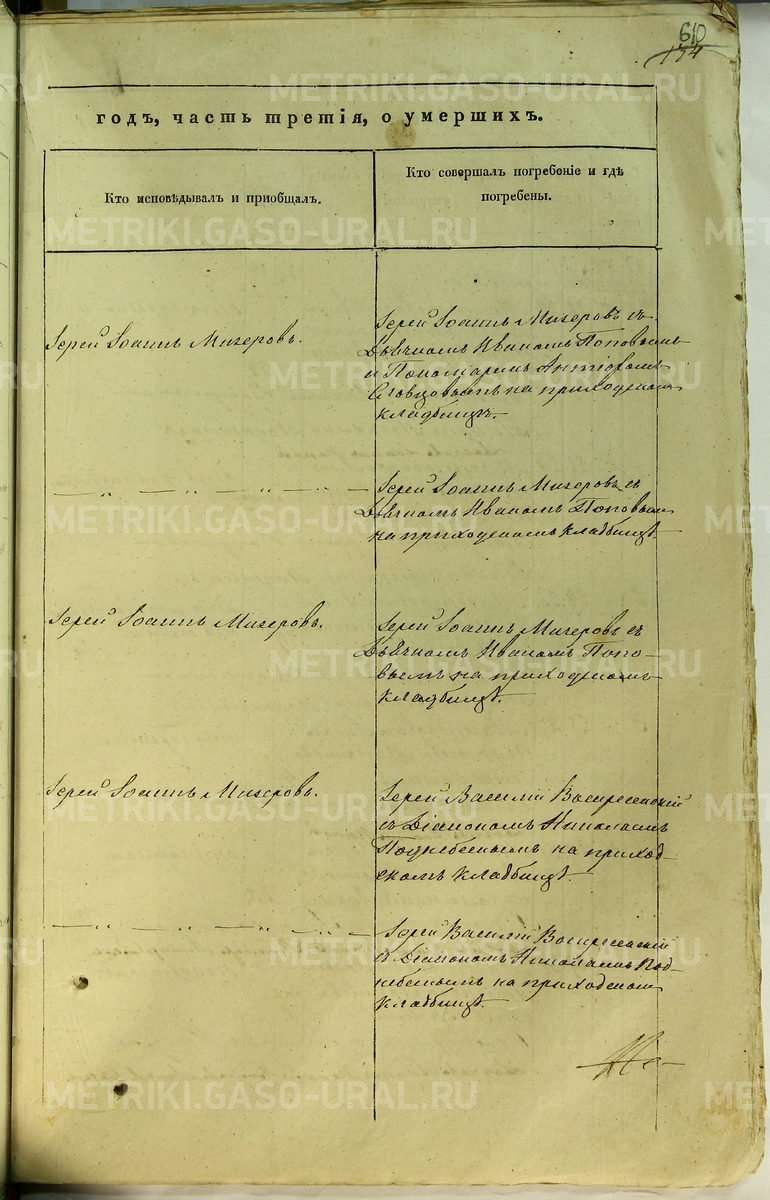 610
134
годъ, часть третія, о умершихъ.
Кто исповѣдывалъ и приобщалъ.
Кто совершалъ погребеніе и гдѣ
погребены.
Іерей Іоаннъ Мичеровъ.
Іерей Іоаннъ Мичеровъ съ
Дьячкомъ Иваномъ Поповымъ
и Пономаремъ
на приходскомъ
кладбищѣ.
— „ — „ — „ —
Іерей Іоаннъ Мичеровъ съ
Дьячкомъ Иваномъ Поповым
на приходскомъ кладбищѣ.
Іерей Іоаннъ Мичеровъ.
Іерей Іоаннъ Мичеровъ съ
Дьячкомъ Иваномъ Попо-
вымъ на приходскомъ
кладбищѣ.
Іерей Іоаннъ Мичеровъ.
Іерей Василій Воскресенскій
съ Діакономъ Николаемъ
Поднебеснымъ на приход-
скомъ кладбищѣ.
— „ — „ — „ —
Іерей Василій Воскресенскій
съ Діакономъ Николаемъ Под-
небеснымъ на приходском
кладбищѣ.
METRIKI.GASO-URAL.RU